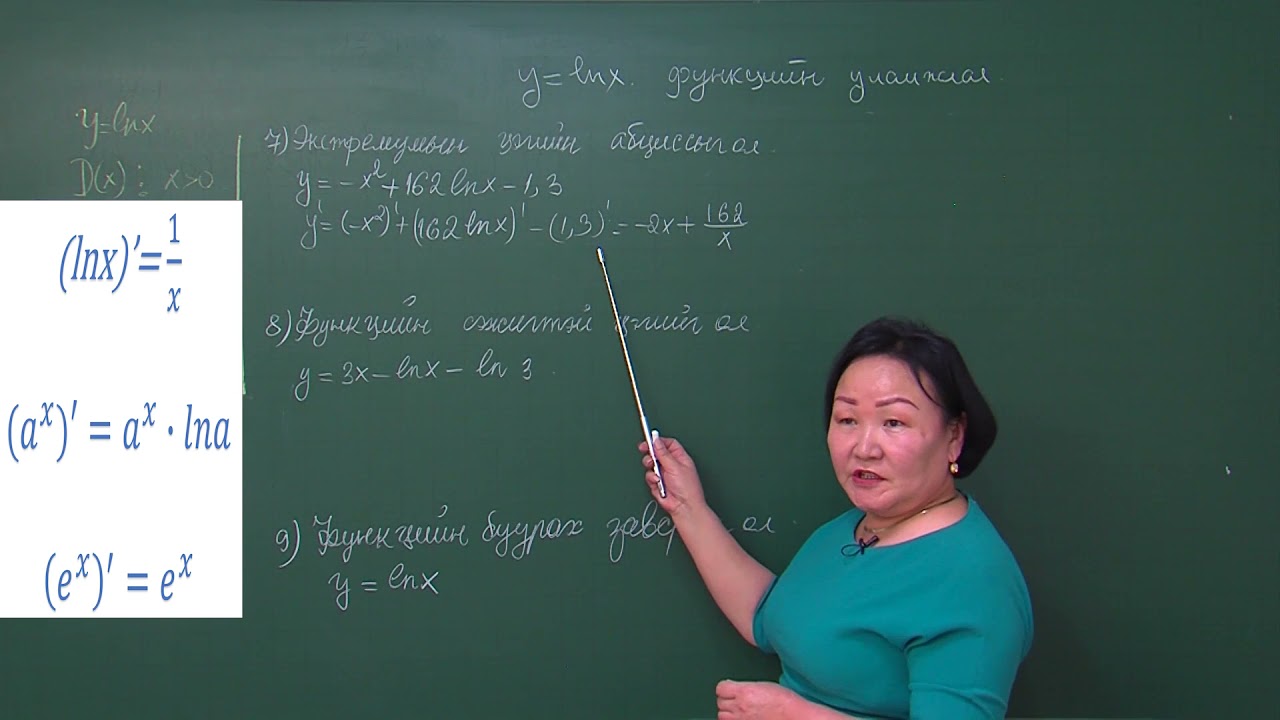 y = lnx. функцийн уламжлал
y=lnx
D(x): x>0
7) Экстремумын цэгийн абциссыг ол.
y = -x² + 162 lnx - 1,3
y' = (-x²)' + (162 lnx)' - (1,3)' = -2x + 162/x
8) Функцийн сэжигтэй цэгийг ол
y = 3x - lnx - ln 3
9) Функцийн буурах ол
y = lnx
(lnx)' = 1/x
(aˣ)' = aˣ · lna
(eˣ)' = eˣ